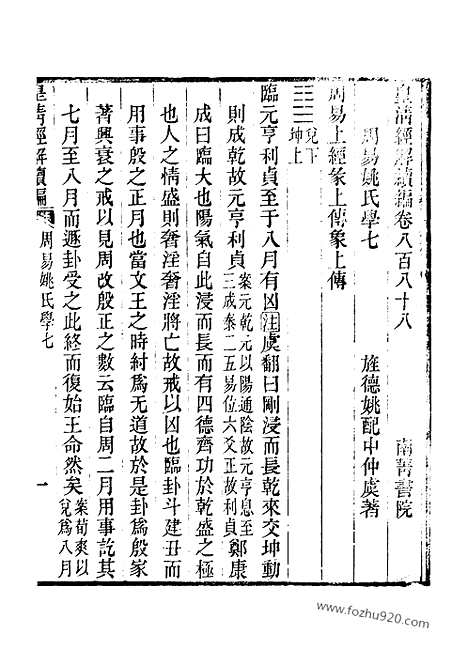 皇清經解續編卷八百八十八
南菁書院
周易姚氏學七
旌德姚配中仲虞著
周易上經彖上傳象上傳
兌下
坤上
臨元亨利貞至于八月有凶注虞翻曰剛浸而長乾來交坤動
則成乾故元亨利貞案元乾元以陽通陰故元亨息至
三成泰二五易位六爻正故利貞鄭康
成曰臨大也陽氣自此浸而長而有四德齊功於乾盛之極
也人之情盛則奢淫奢淫將亡故戒以凶也臨卦斗建丑而
用事殷之正月也當文王之時紂爲无道故於是卦爲殷家
著興衰之戒以見周改殷正之數云臨自周二月用事訖其
七月至八月而遯卦受之此終而復始王命然矣案荀爽以
兌爲八月
皇清經解續編
周易姚氏學七
一
www.fozhu920.com